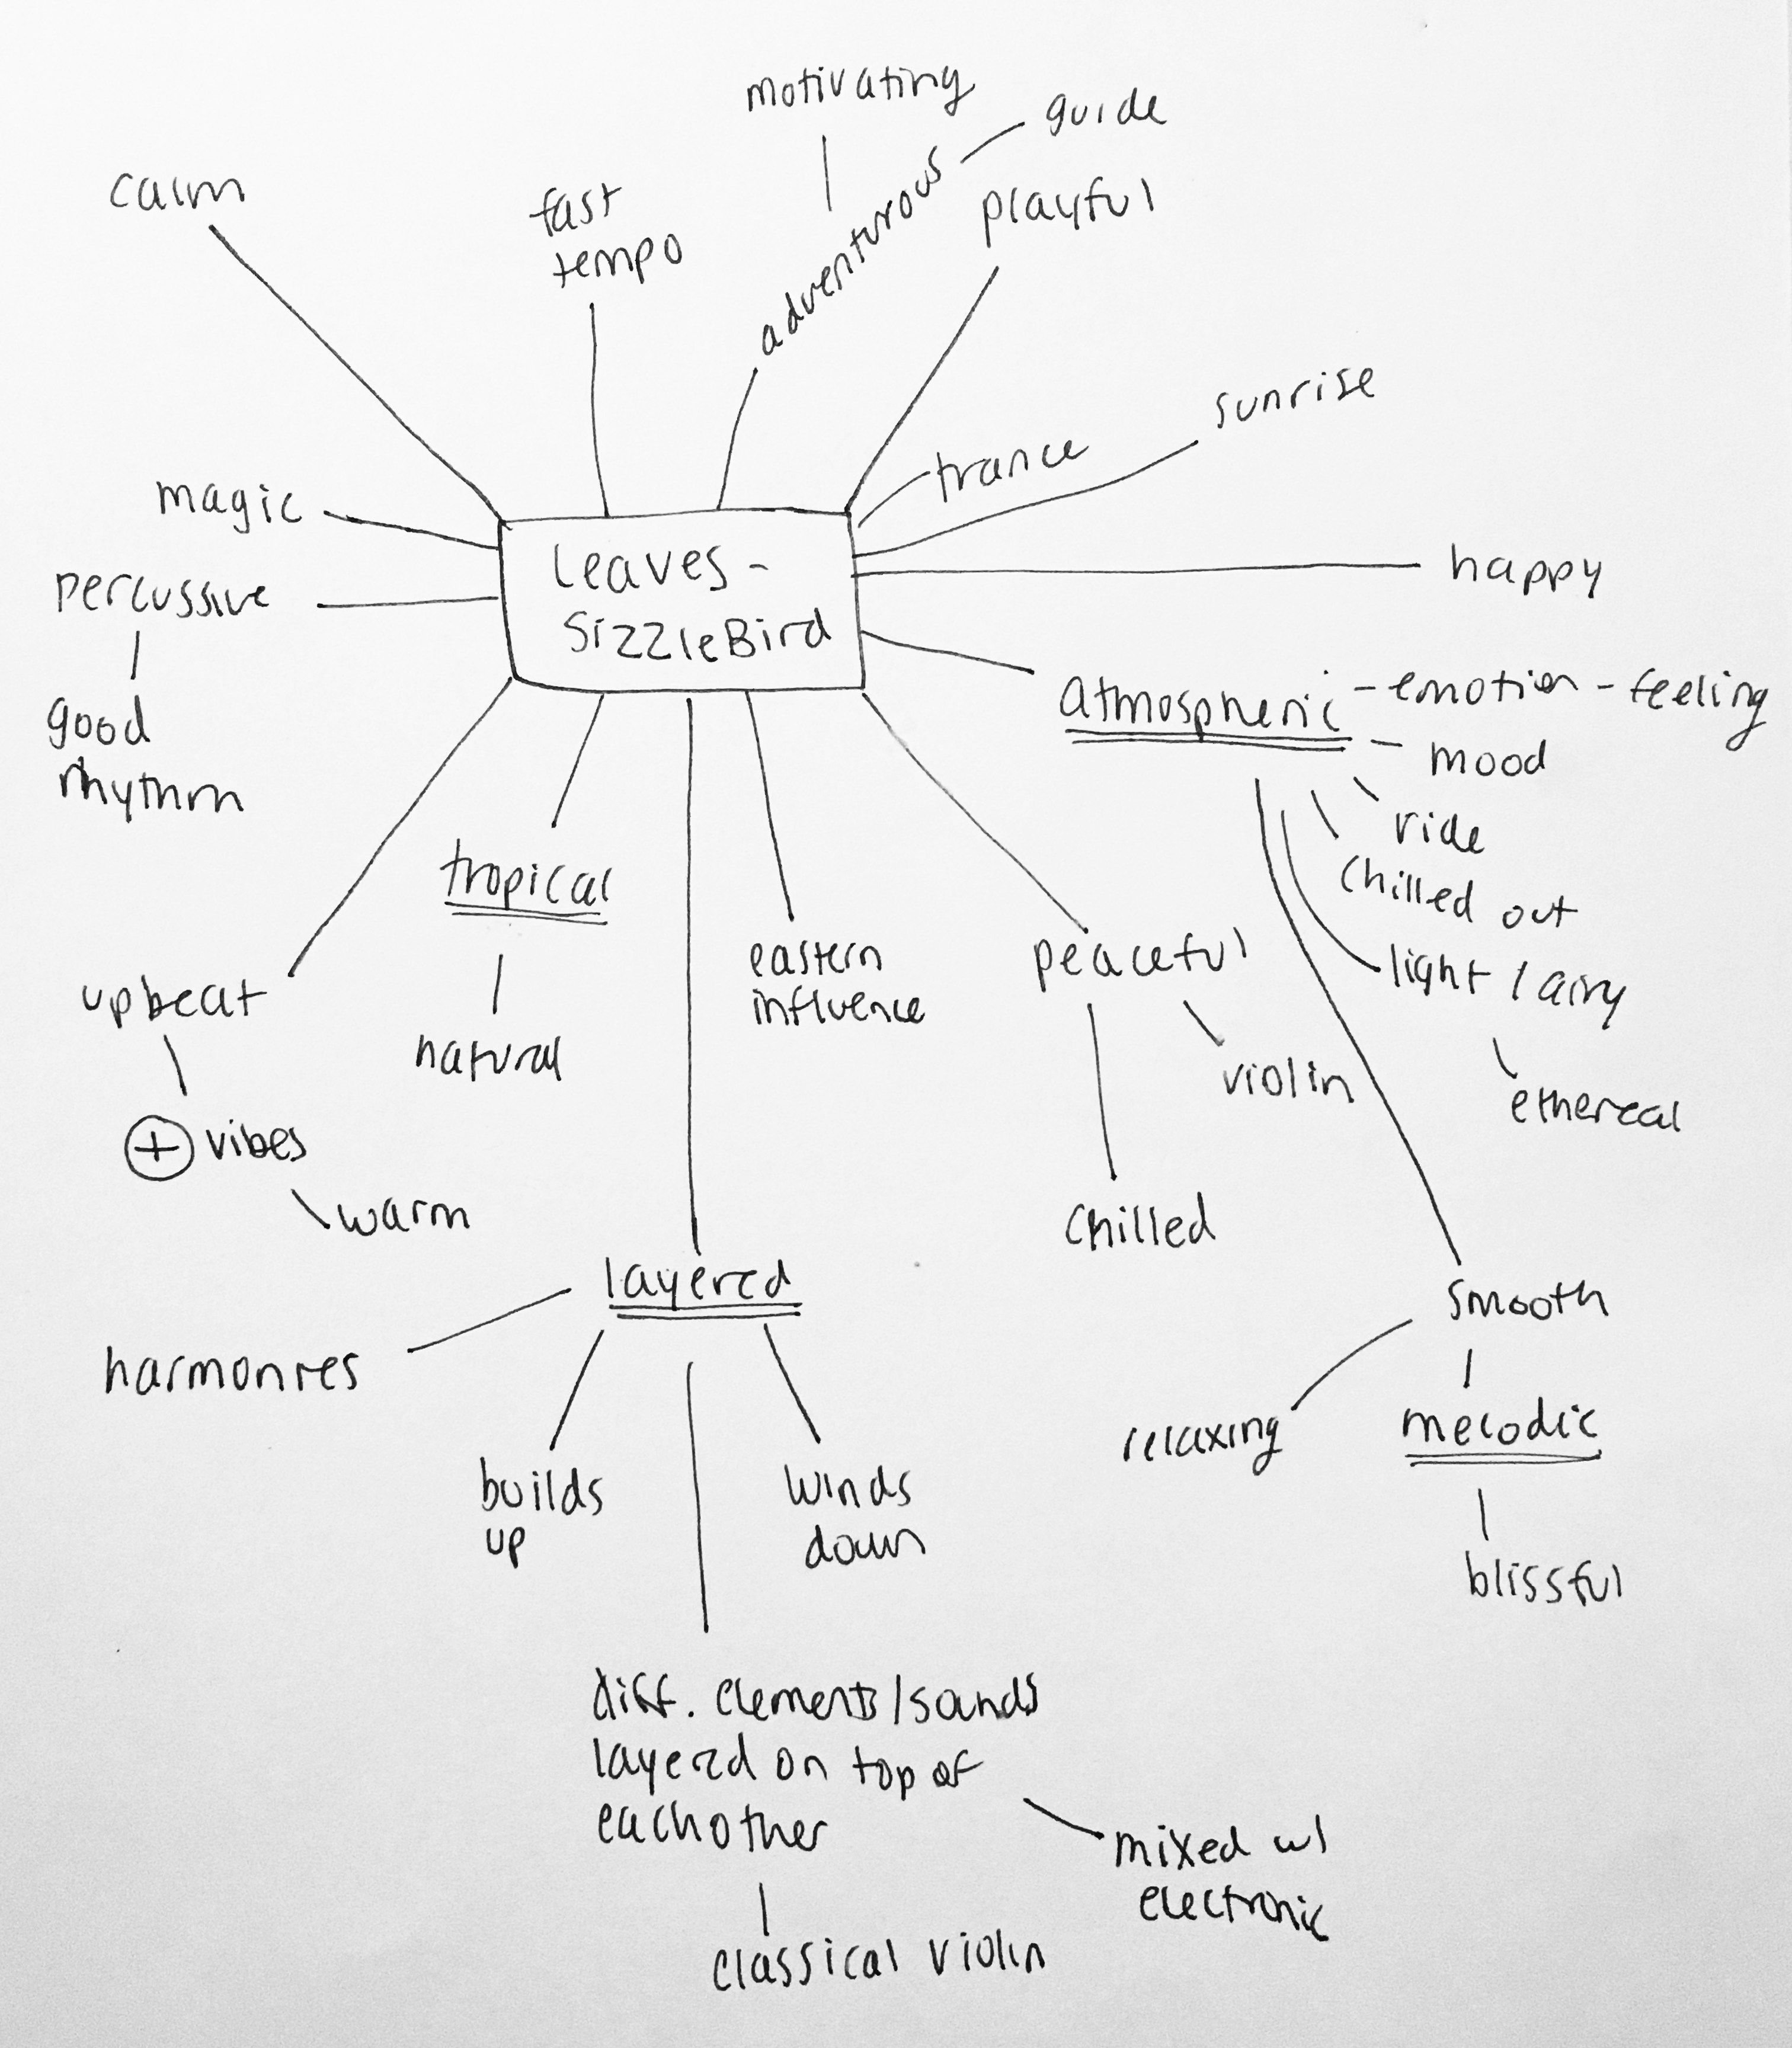 motivating
guide
calm
fast
tempo
adventurous
playful
sunrise
trance
magic
Leaves -
SizzleBird
happy
percussive
good
rhythm
Atmospheric - emotion - feeling
mood
ride
chilled out
light / airy
ethereal
tropical
natural
eastern
influence
peaceful
violin
chilled
upbeat
+ vibes
warm
layered
harmonies
builds
up
winds
down
smooth
relaxing
melodic
blissful
diff. elements/sounds
layered on top of
eachother
mixed w/
electronic
classical violin